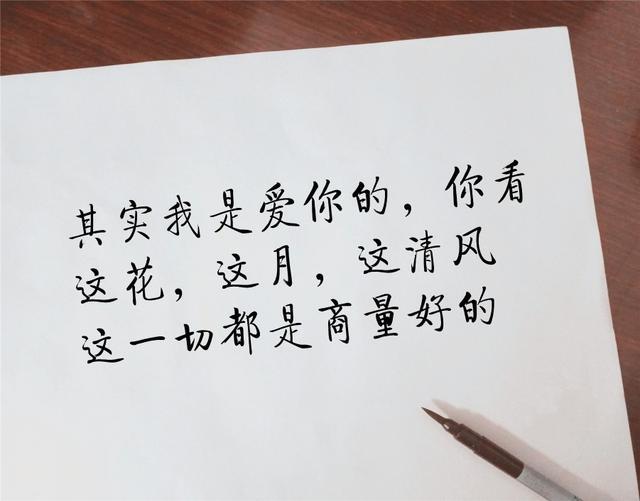 其实我是爱你的，你看
这花，这月，这清风
这一切都是商量好的